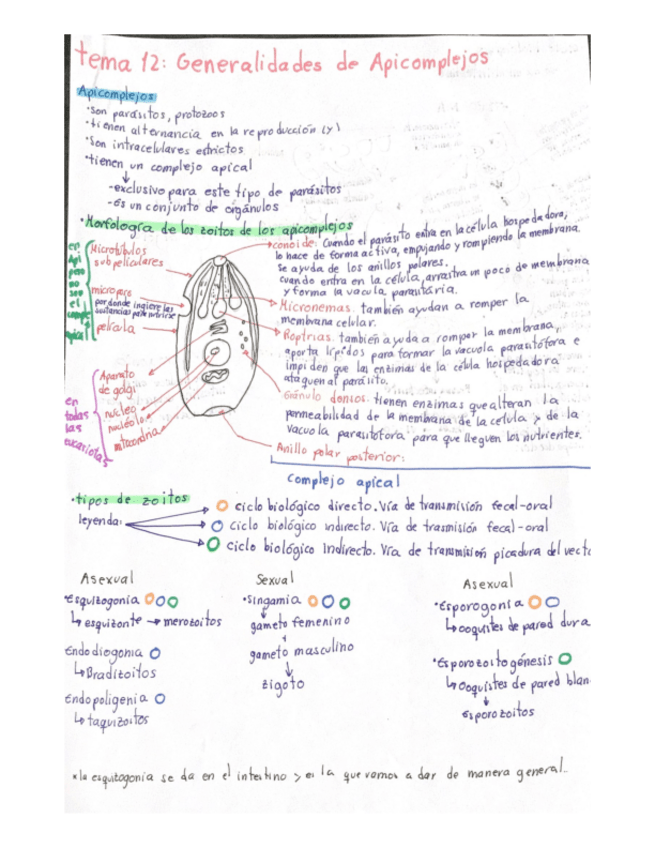 tema 12: Generalidades de Apicomplejos
Apicomplejos
·son parásitos, protozoos
·tienen alternancia en la reproducción (y)
·son intracelulares estrictos
·tienen un complejo apical
↓
-exclusivo para este tipo de parásitos
-és un conjunto de orgánulos
·Morfología de los zoitos de los apicomplejos
en Api pero no son el complejo apical
Microtúbulos
subpeliculares
microporo
por donde ingiere las
sustancias para nutrirse
película
en todas las eucariotas
Aparato
de golgi
nucleo
nucléolo
mitocondria
conoide: Cuando el parásito entra en la célula hospedadora,
lo hace de forma activa, empujando y rompiendo la membrana.
Se ayuda de los anillos polares.
cuando entra en la célula, arrastra un poco de membrana
y forma la vacuola parasitaria.
Micronemas: también ayudan a romper la
membrana celular.
Roptrias: también ayuda a romper la membrana,
aporta lípidos para formar la vacuola parasitófora e
impiden que las enzimas de la célula hospedadora
ataquen al parásito.
Gránulo densos: tienen enzimas que alteran la
permeabilidad de la membrana de la celula y de la
vacuola parasitofora para que lleguen los nutrientes.
Anillo polar posterior:
complejo apical
·tipos de zoitos
leyenda:
ciclo biológico directo. Vía de transmisión fecal-oral
ciclo biológico indirecto. Vía de trasmisión fecal-oral
ciclo biológico Indirecto. Vía de transmision picadura del vecto
Asexual
·Esquizogonia
↳ esquizonte → merozoitos
Endodiogonia
↳Bradizoitos
Endopoligenia
↳ taquizoitos
Sexual
·Singamia
gameto femenino
+
gameto masculino
↓
zigoto
Asexual
·Esporogonia
↳ooquistes de pared dura
·Esporozoitogénesis
↳Ooquistes de pared blan
↓
esporozoitos
*la esquizogonia se da en el intestino y es la que vamos a dar de manera general.